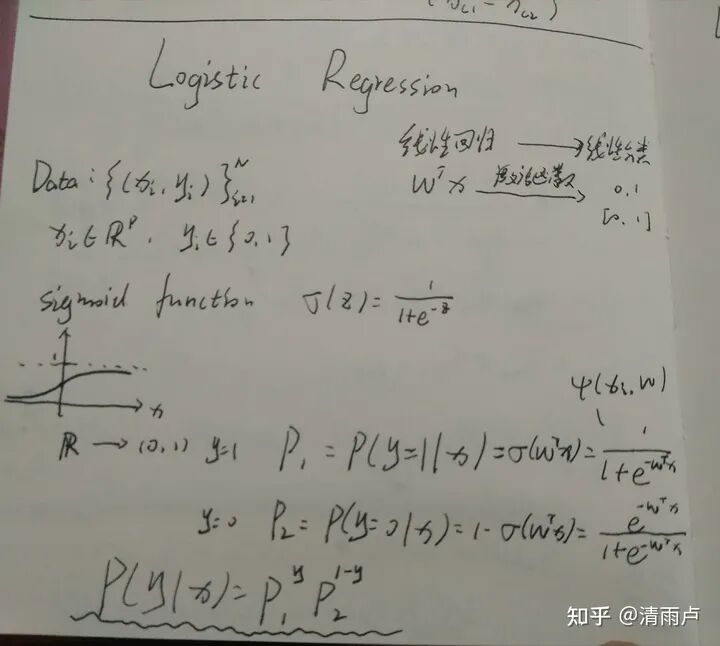 Logistic Regression
线性回归 → 线性分类
Data: {(xᵢ, yᵢ)}ᵢ₌₁ᴺ
wᵀx 激活函数→ 0,1
[0,1]
xᵢ∈ℝᵖ, yᵢ∈{0,1}
sigmoid function σ(z)=1/(1+e^{-z})
1
x
ψ(xᵢ,w)
ℝ → (0,1) y=1 P₁ = P(y=1|x) = σ(wᵀx) = 1/(1+e^{-wᵀx})
y=0 P₂ = P(y=0|x) = 1-σ(wᵀx) = e^{-wᵀx}/(1+e^{-wᵀx})
P(y|x) = P₁^y P₂^{1-y}
知乎 @清雨卢